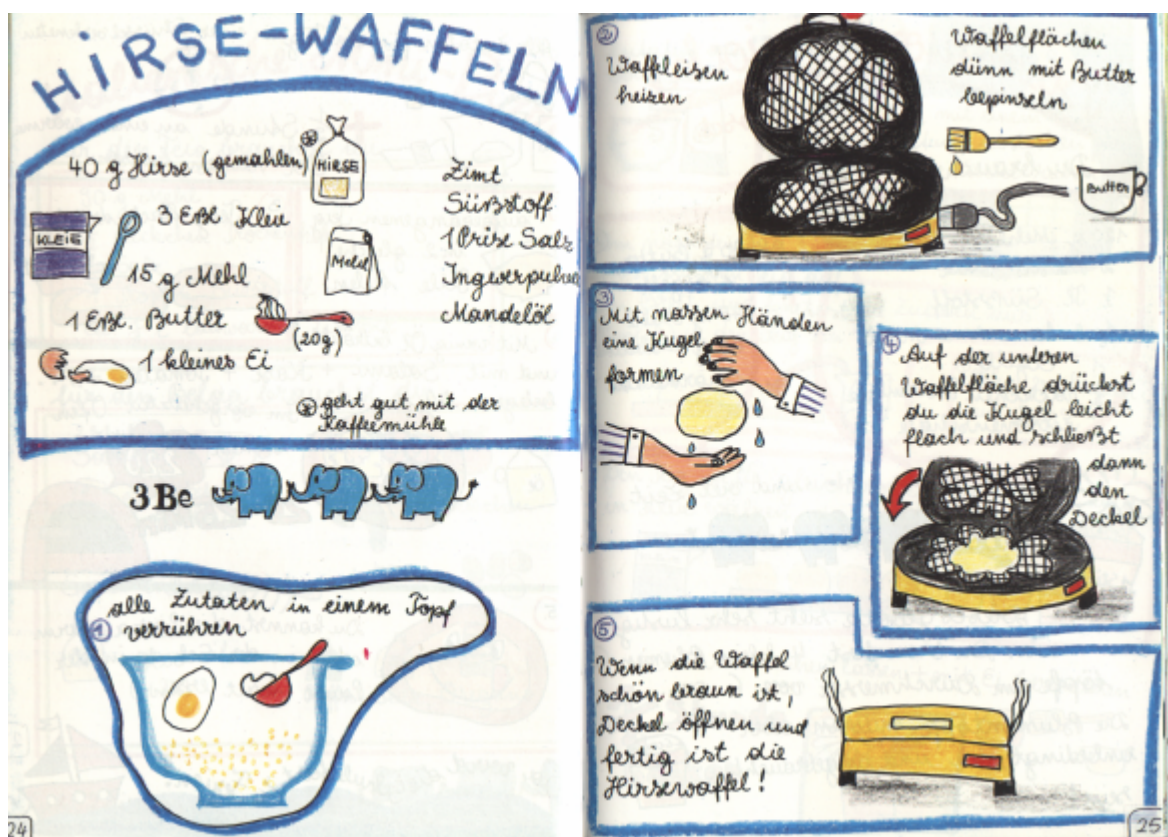 HIRSE-WAFFELN
40 g Hirse (gemahlen)
HIRSE
KLEIE
3 Eßl. Kleie
Mehl
15 g Mehl
1 Eßl. Butter
(20g)
1 kleines Ei
Zimt
Süßstoff
1 Prise Salz
Ingwerpulver
Mandelöl
geht gut mit der
Kaffeemühle
3 Be
1
alle Zutaten in einem Topf
verrühren
24
2
Waffeleisen
heizen
Waffelflächen
dünn mit Butter
bepinseln
Butter
3
Mit nassen Händen
eine Kugel
formen
4
Auf der unteren
Waffelfläche drückst
du die Kugel leicht
flach und schließt
dann
den
Deckel
5
Wenn die Waffel
schön braun ist,
Deckel öffnen und
fertig ist die
Hirsewaffel!
25